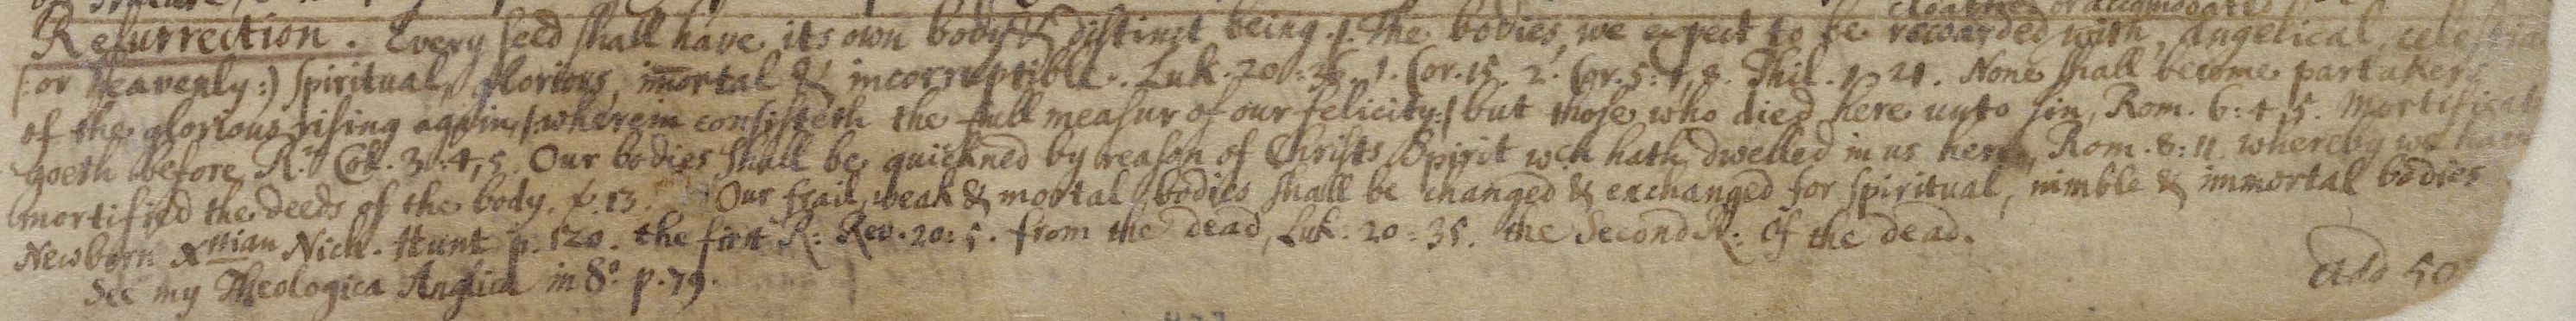 cloathed or accommodated
Resurrection. Every seed shall have its own body & distinct being. The bodies, we expect to be rewarded with, angelical, celestial
(: or Heavenly :) spiritual, glorious, immortal & incorruptible. Luk. 20:36. 1. Cor. 15. 2. Cor. 5: 1, 2. Phil. 21. None shall become partakers
of the glorious rising again, /: wherein consisteth the full measur of our felicity :/ but those who died here unto sin, Rom. 6: 4, 5. Mortificat
goeth before R. Col. 3: 4, 5. Our bodies shall be quickned by reason of Christs Spirit wch hath dwelled in us here, Rom. 8: 11. whereby we have
mortified the deeds of the body. 13. Our frail, weak & mortal bodies shall be changed & exchanged for spiritual, nimble & immortal bodies
Newborn Xtian Nich. Hunt p. 120. the first R: Rev. 20: 5. from the dead, Luk: 20: 35. the Second R: of the dead.
See my Theologica Anglica in 8o p. 79.
add 50